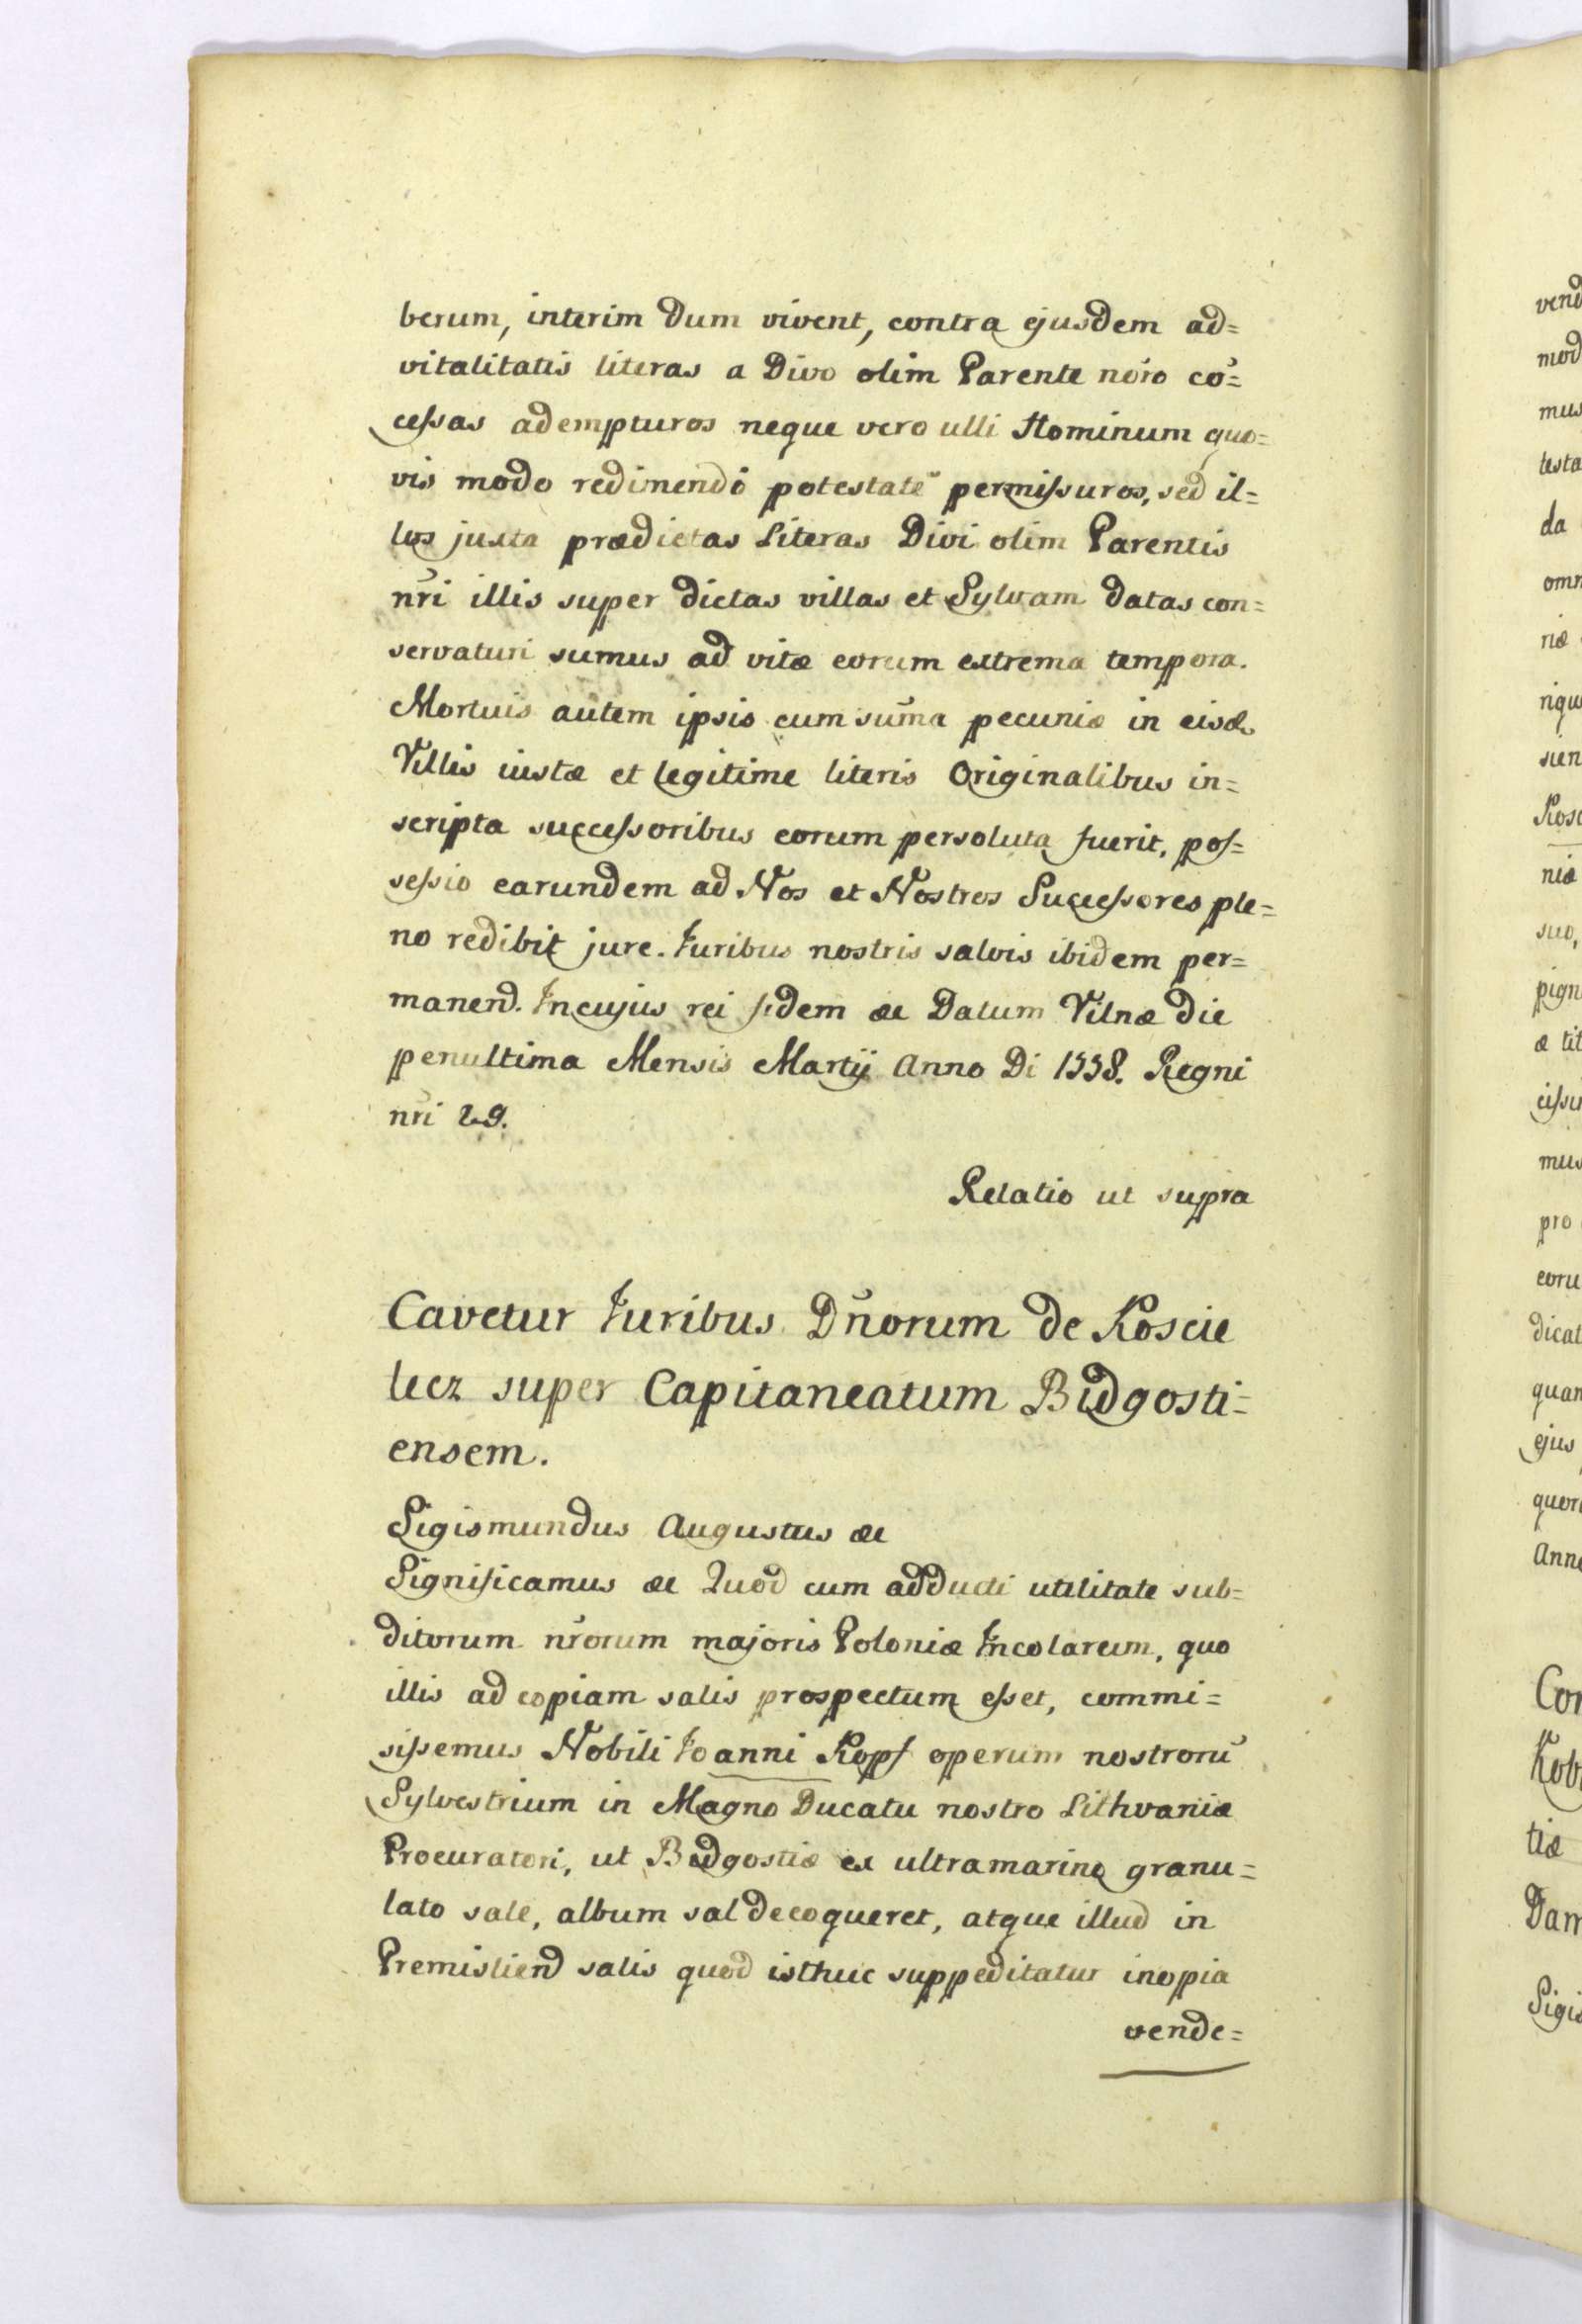 berum, interim dum vivent, contra ejusdem ad=
vitalitatis literas a Divo olim Parente nõro cõ=
cessas adempturos neque vero ulli Hominum quo=
vis modo redimendi potestatẽ permissuros, sed il=
los juxta prædictas Literas Divi olim Parentis
nr̃i illis super dictas villas et Sylvam datas con=
servaturi sumus ad vitæ eorum extrema tempora.
Mortuis autem ipsis cum sum̃a pecuniæ in eisd.
Villis iustæ et legitime literis Originalibus in=
scripta successoribus eorum persoluta fuerit, pos=
sessio earundem ad Nos et Nostros Successores ple=
no redibit jure. Iuribus nostris salvis ibidem per=
manend. In cujus rei fidem &c Datum Vilnæ die
penultima Mensis Martij Anno Di 1558. Regni
nr̃i 29.
Relatio ut supra
Cavetur Iuribus Dñorum de Koscie
lecz super Capitaneatum Bidgosti=
ensem.
Sigismundus Augustus &c
Significamus &c Quod cum adducti utilitate sub=
ditorum nr̃orum majoris Poloniæ Incolarum, quo
illis ad copiam salis prospectum esset, commi=
sissemus Nobili Ioanni Kopf operum nostrorũ
Sylvestrium in Magno Ducatu nostro Lithvaniæ
Procuratori, ut Bidgostiæ ex ultramarino granu=
lato sale, album sal decoqueret, atque illud in
Premisliend salis quod isthuc suppeditatur inopia
vende=